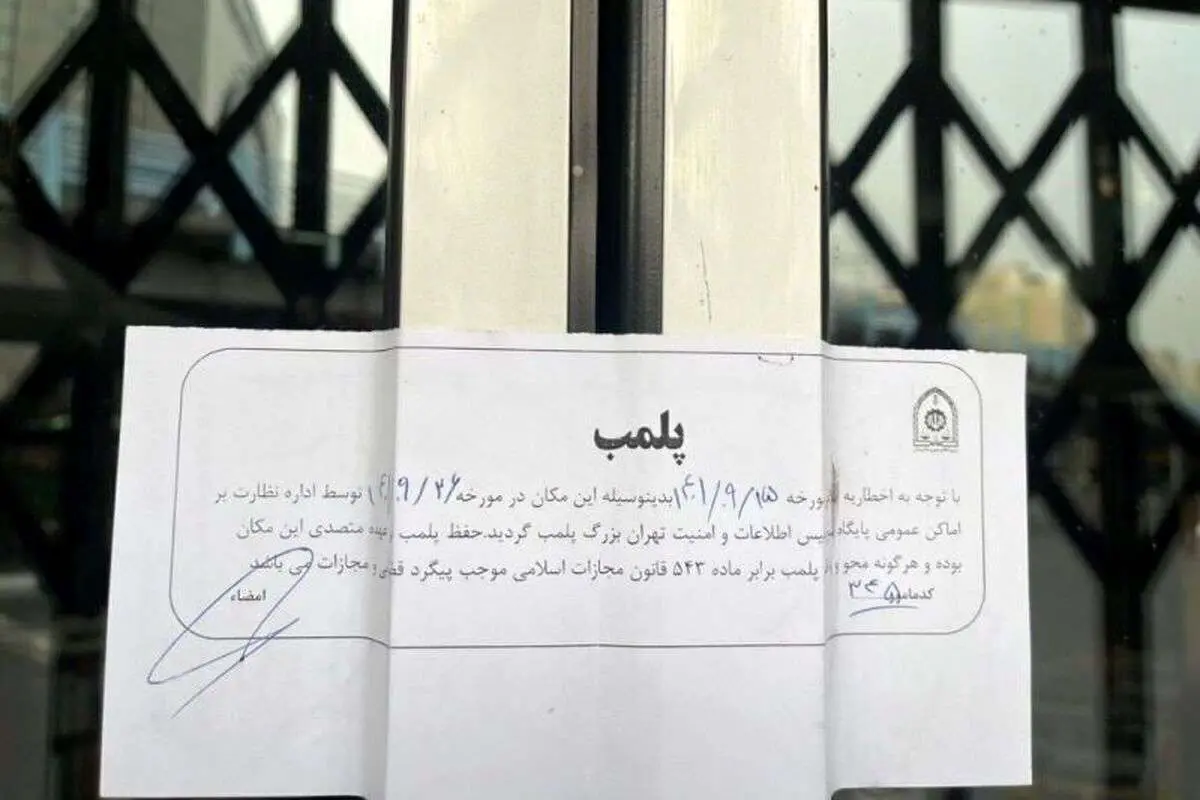 پلمب
با توجه به اخطاریه مورخه ۱۴۰۱/۹/۱۵ بدینوسیله این مکان در مورخه ۱۴۰۱/۹/۲۶ توسط اداره نظارت بر
اماکن عمومی پایگاه پلیس اطلاعات و امنیت تهران بزرگ پلمب گردید.حفظ پلمب بعهده متصدی این مکان
بوده و هرگونه محو و پلمب برابر ماده ۵۴۳ قانون مجازات اسلامی موجب پیگرد و مجازات می باشد
کدمامور ۳۴۵ امضاء